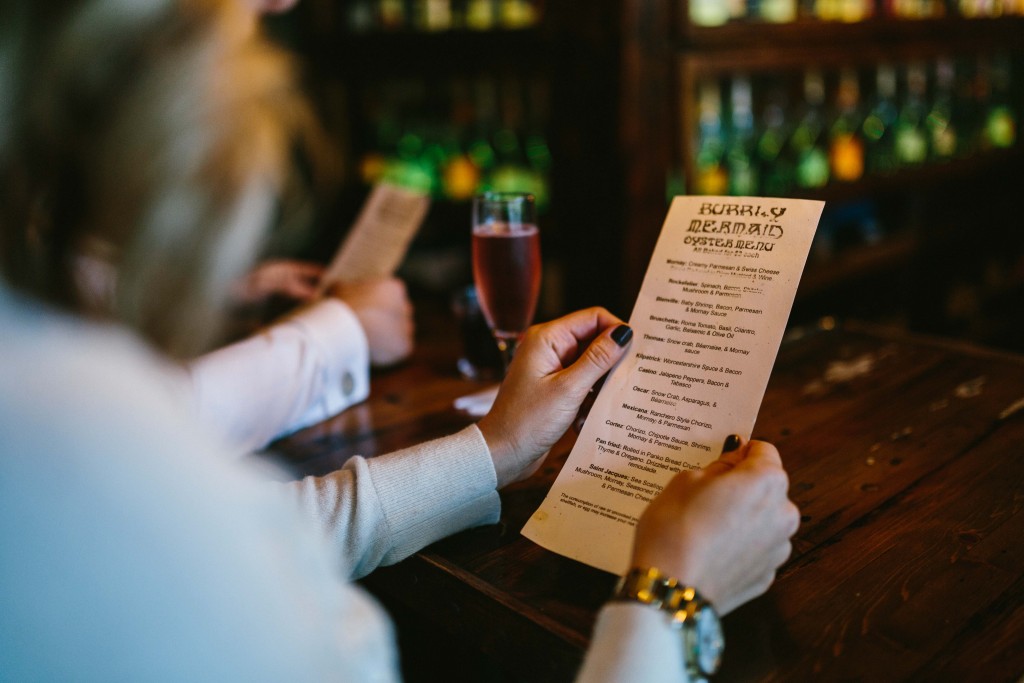 MERMAID
OYSTER MENU
All Baked for $3 each
Mornay: Creamy Parmesan & Swiss Cheese
Rockefeller: Spinach, Bacon,
Mushroom & Parmesan
Bienville: Baby Shrimp, Bacon, Parmesan
& Mornay Sauce
Bruschetta: Roma Tomato, Basil, Cilantro,
Garlic, Balsamic & Olive Oil
Thomas: Snow crab, Béarnaise, & Mornay
sauce
Kilpatrick: Worcestershire Sauce & Bacon
Casino: Jalapeno Peppers, Bacon &
Tabasco
Oscar: Snow Crab, Asparagus, &
Béarnaise
Mexicana: Ranchero Style Chorizo,
Mornay & Parmesan
Cortez: Chorizo, Chipotle Sauce, Shrimp,
Mornay & Parmesan
Pan fried: Rolled in Panko Bread
Thyme & Oregano. Drizzled with
remoulade
Saint Jacques: Sea
Mushroom, Mornay, Seasoned
& Parmesan
The consumption of raw or
shellfish, or egg may increase your